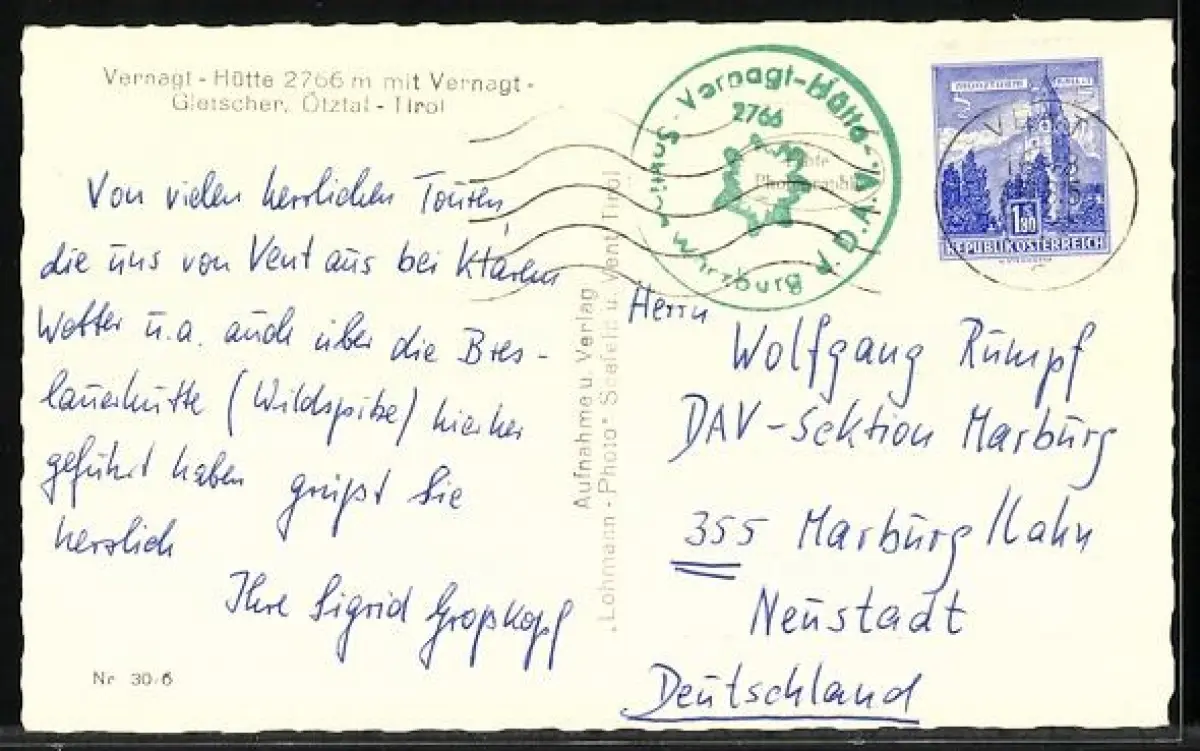 Vernagt-Hütte 2766 m mit Vernagt-
Gletscher, Ötztal-Tirol
Von vielen herrlichen Touren,
die uns von Vent aus bei klarem
Wetter u.a. auch über die Bres-
lauerhütte (Wildspitze) hierher
geführt haben grüßt Sie
herzlich
Ihre Sigrid Großkopf
Nr. 30/6
Aufnahme u. Verlag
"Lohmann-Photo" Seefeld u. Vent Tirol
Vernagt-Hütte
2766
Würzburg
Echte
Photographie
MÜNZTURM
HALL I. T.
1.80
REPUBLIK ÖSTERREICH
VENT
Herrn
Wolfgang Rumpf
DAV-Sektion Marburg
355 Marburg/Lahn
Neustadt
Deutschland